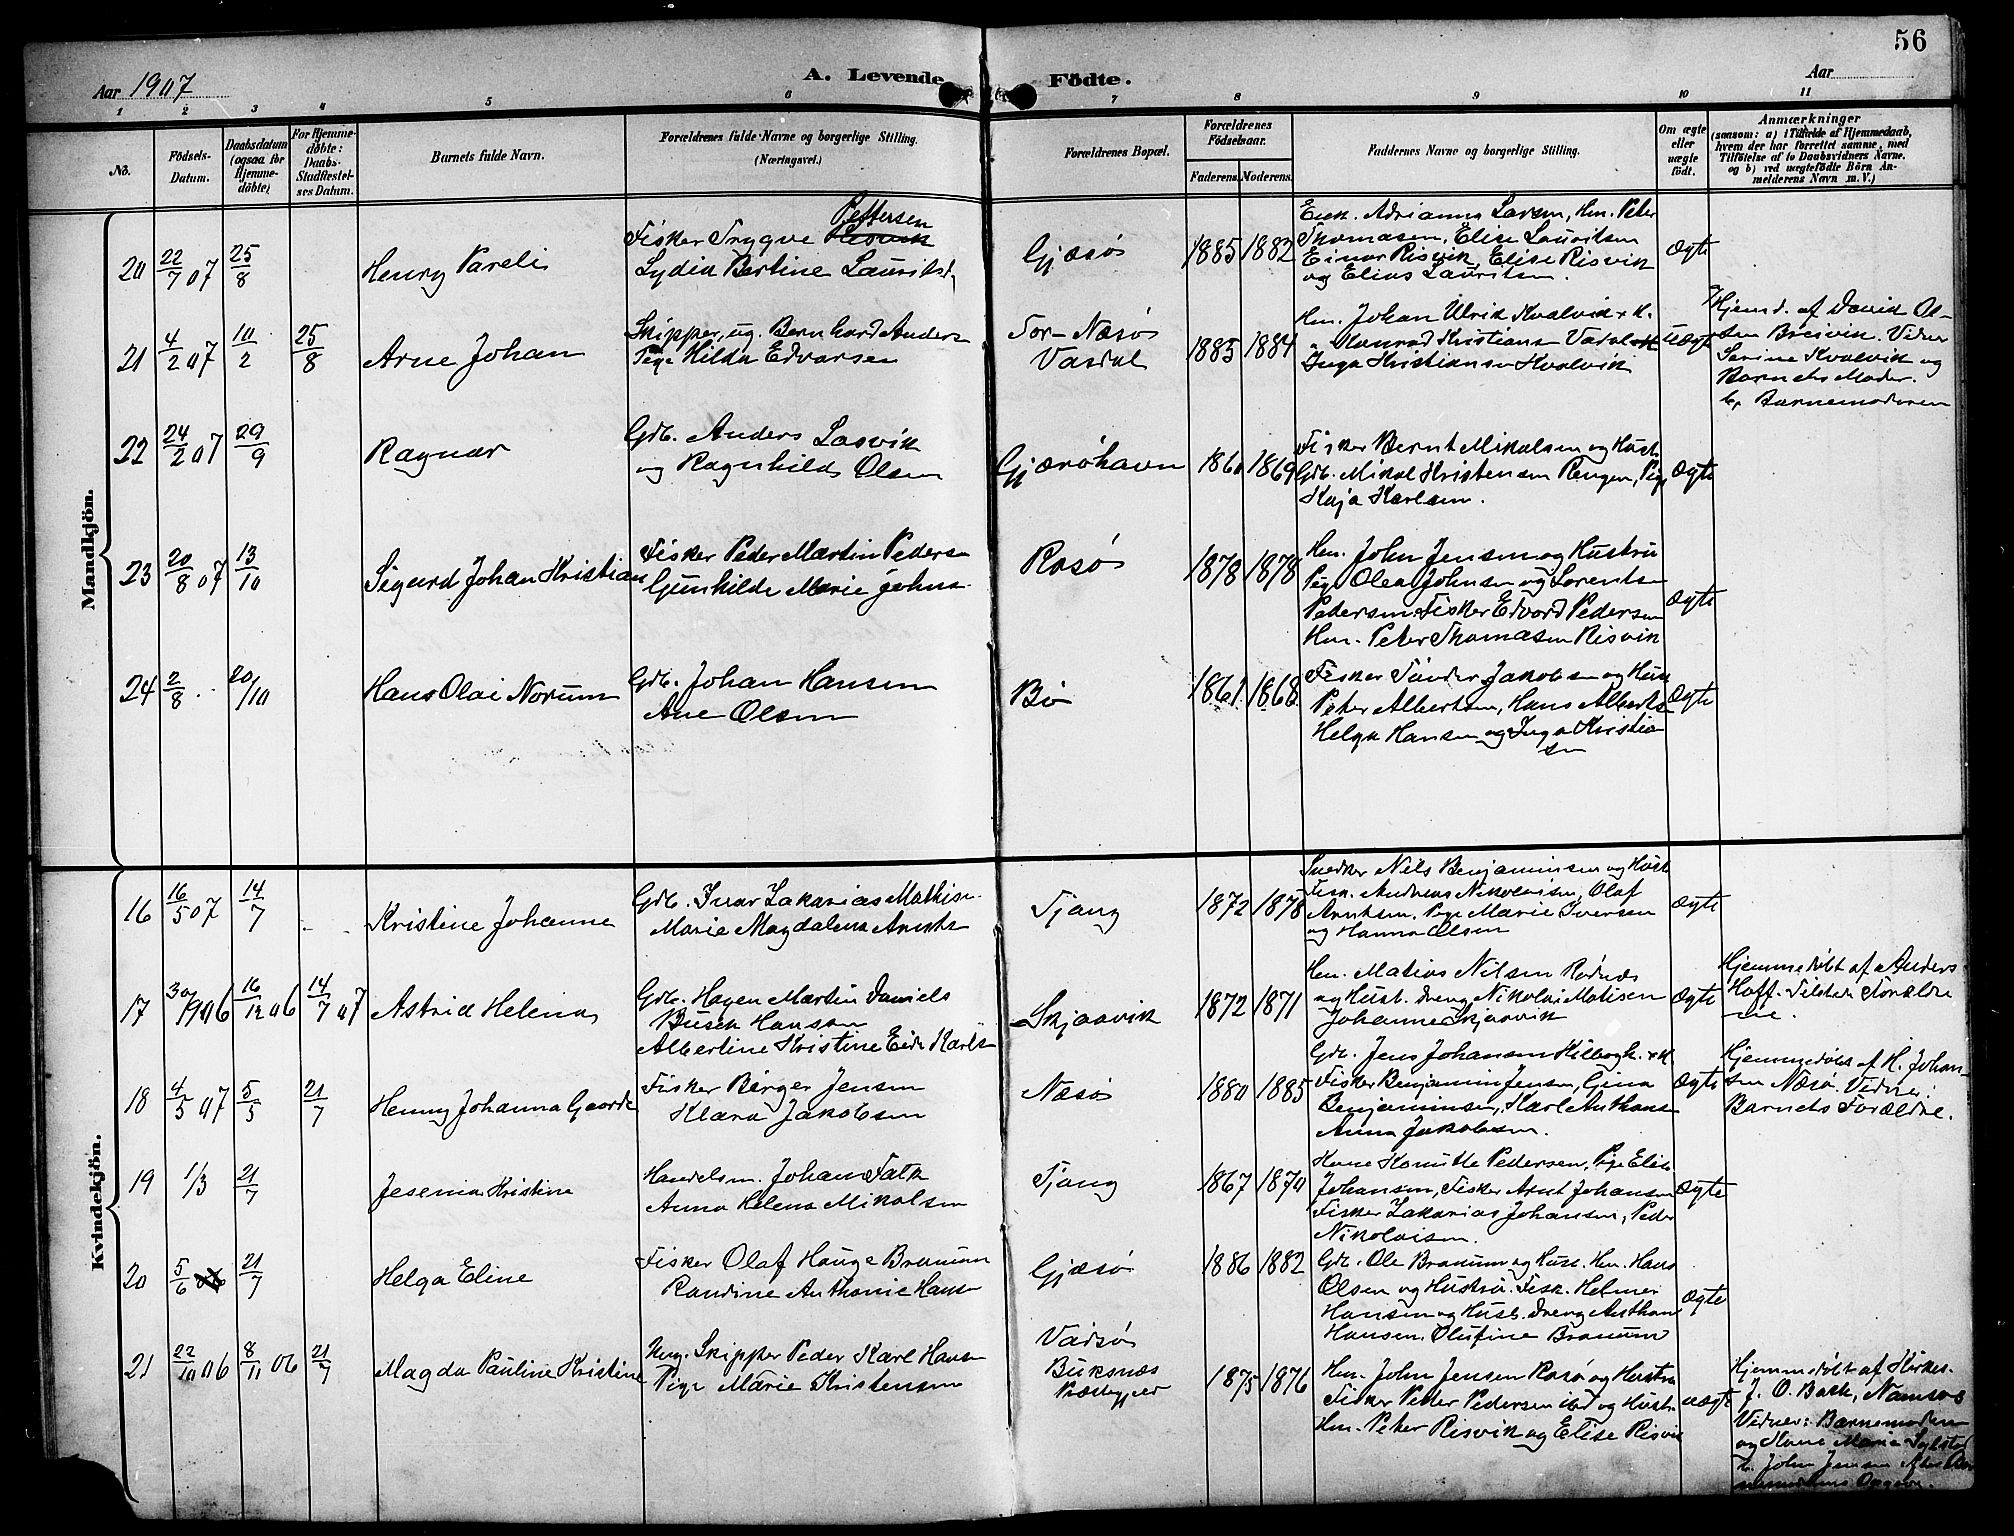 56
Aar 1907
A. Levende Födte.
Aar
1 2 3 4 5 6 7 8 9 10 11
No.
Födsels-Datum.
Daabsdatum (ogsaa for Hjemme-döbte)
For Hjemme-döbte: Daabs-Stadfæstel-ses Datum.
Barnets fulde Navn.
Forældrenes fulde Navne og borgerlige Stilling. (Næringsvei.)
Forældrenes Bopæl.
Forældrenes Födselsaar.
Faderens. Moderens.
Faddernes Navne og borgerlige Stilling.
Om ægte eller uægte födt.
Anmærkninger
(saasom: a) i Tilfælde af Hjemmedaab,
hvem der har forrettet samme, med
Tilföielse af to Daabsvidners Navne,
og b) ved uægtefödte Börn An-
melderens Navn m. V.)
Mandkjön.
20 22/7 07 25/8 Henry Pareli
Fisker Trygve Risvik Pettersen
Lydia Bertine Lauritsd.
Gjæsø 1885 1882
Enk. Adrianna Larsen, Hm. Peter
Thomasen, Elise Lauritsen
Einar Risvik, Elise Risvik
og Elias Lauritsen.
Ægte
21 4/2 07 10/2 25/8 Arne Johan
Skipper, ug. Bernhard Anders
Pige Hilda Edvarsen
Tor-Næsø
Vasdal
1885 1884
Hm. Johan Ulrik Kvalvik + K.
" Konrad Kristiansen Vasdal
Inga Kristiansen Kvalvik
Uægte
Hjemd. af David Ol-
sen Breivik. Vidner
Sarine Kvalvik og
Barnets Moder.
b, Barnemoderen
22 24/2 07 29/9 Ragnar
Gdb. Anders Lasvik
og Ragnhild Olsen
Gjærøhavn 1860 1869
Fisker Bernt Mikalsen og Hust.
Gdb. Mikal Kristensen Rengen, Pige
Kaja Karlsen.
Ægte
23 20/8 07 13/10 Sigurd Johan Kristian
Fisker Peder Martin Peders
Gunhilde Marie Johns.
Rosø 1878 1878
Hm. John Jensen og Hustru
Pige Olea Johnsen og Lorentse
Pedersen, Fisker Edvard Pedersen
Hm. Peter Thomasen Risvik
Ægte
24 2/8 .. 20/10 Hans Olai Norum
Gdb. Johan Hansen
Ane Olsen
Bø 1861. 1868.
Fisker Sander Jakobsen og Hust
Peter Albertsen, Hans Alberts
Helga Hansen og Inga Kristia
sen
Ægte
Kvindekjön.
16 16/5 07 14/7 Kristine Johanne
Gdb. Ivar Zakarias Mathis.
Marie Magdalena Arnts
Tjang 1872 1878
Snedker Nils Benjaminsen og Hust
Fisk. Andreas Nikolaisen, Olaf
Arntsen, Pige Marie Iversen
og Hanna Olsen
Ægte
17 30/9 1906 16/12 06 14/7 07 Astrid Helena
Gdb. Hagen Martin Daniels
Busch Hansen
Albertine Kristine Eide Karls
Skjaavik 1872 1871
Hm. Matias Nilsen Rødnæs
og Hust. dreng Nikolai Matisen
Johanne Skjaavik
Ægte
Hjemmedøbt af Anders
Hoff. Tilstede Forældre
ne.
18 4/5 07 5/5 21/7 Henny Johanna Gaarde
Fisker Birger Jensen
Klara Jakobsen
Næsø 1880 1885
Gdb. Jens Johansen Kilbogh. + H.
Fisker Benjamin Jensen, Gina
Benjaminsen, Karl Anthons
Anna Jakobsen.
Ægte
Hjemmedøbt af H. Johan-
sen Næsø. Vidner:
Barnets Forældre.
19 1/3 21/7 Jesenia Kristine
Handelsm. Johan Falk
Anna Helena Mikalsen
Tjang 1867 1870
Kone Konutte Pedersen, Pige Elise
Johansen, Fisker Arnt Johansen
Fisker Zakarias Johansen, Peder
Nikolaisen.
Ægte
20 5/6 21/7 Helga Eline
Fisker Olaf Hauge Branum
Randine Anthonie Hans
Gjæsø 1886 1882
Gdb. Ole Branum og Hust. Hm. Hans
Olsen og Hustru. Fisk. Helmer
Hansen og Hust. Dreng Anthon
Hansen. Olufine Branum
Ægte
21 22/10 06 8/11 06 21/7 Magda Pauline Kristine
Ung. Skipper Peder Karl Hans
Pige Marie Kristensen
Vadsø
Buksnæs
Præstegjeld
1875 1876
Hm. John Jensen Rosø og Hustru
Fisker Peter Pedersen ibd og Hustr.
Hm. Peter Risvik og Elise Risvik
uægte
Hjemmedøbt af Kirkes.
J. O. Bark, Namsos
Vidner: Barnemoderen
og Kone Marie
b, John Jensen efter Bar
nemoderens Opgave.